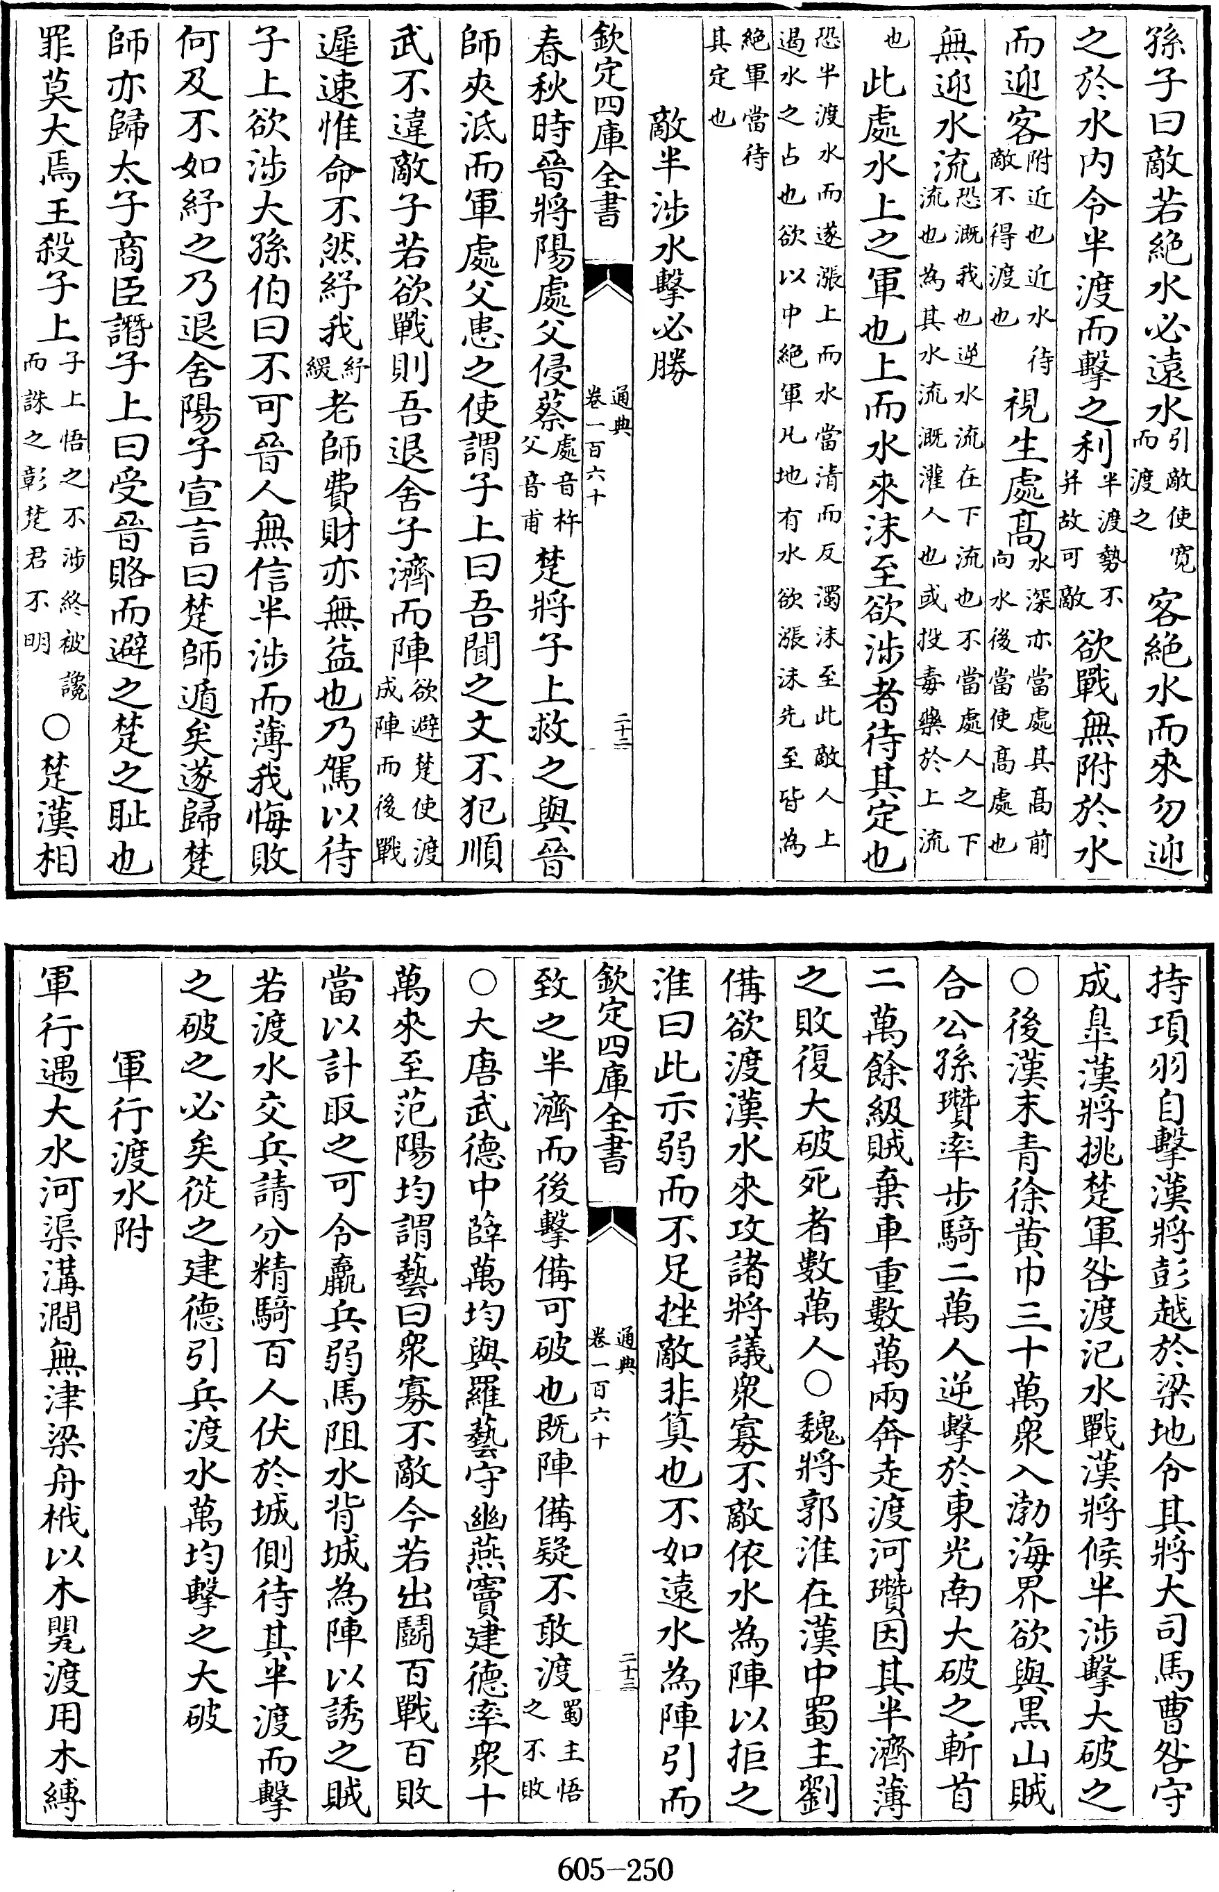 孫子曰敵若絶水必遠水引敵使寛而渡之客絶水而來勿迎
之於水内令半渡而擊之利半渡勢不并故可敵欲戰無附於水
而迎客附近也近水待敵不得渡也視生處髙水深亦當處其髙前向水後當使髙處也
無迎水流恐溉我也逆水流在下流也不當處人之下流也為其水流溉灌人也或投毒藥於上流
也此處水上之軍也上雨水來沫至欲涉者待其定也
恐半渡水而遂漲上雨水當清而反濁沫至此敵人上遏水之占也欲以中絶軍凡地有水欲漲沫先至皆為
絶軍當待其定也
敵半涉水擊必勝
欽定四庫全書
通典
卷一百六十
二十二
春秋時晉將陽處父侵蔡處音杵父音甫楚將子上救之與晉
師夾泜而軍處父患之使謂子上曰吾聞之文不犯順
武不違敵子若欲戰則吾退舍子濟而陣欲避楚使渡成陣而後戰
遲速惟命不然紓我紓緩老師費財亦無益也乃駕以待
子上欲涉大孫伯曰不可晉人無信半涉而薄我悔敗
何及不如紓之乃退舍陽子宣言曰楚師遁矣遂歸楚
師亦歸太子商臣譖子上曰受晉賂而避之楚之耻也
罪莫大焉王殺子上子上悟之不涉終被讒而誅之彰楚君不明○楚漢相
持項羽自擊漢將彭越於梁地令其將大司馬曹咎守
成臯漢將挑楚軍咎渡汜水戰漢將候半涉擊大破之
○後漢末青徐黄巾三十萬衆入渤海界欲與黒山賊
合公孫瓚率步騎二萬人逆擊於東光南大破之斬首
二萬餘級賊棄車重數萬兩奔走渡河瓚因其半濟薄
之敗復大破死者數萬人○魏將郭淮在漢中蜀主劉
備欲渡漢水來攻諸將議衆寡不敵依水為陣以拒之
淮曰此示弱而不足挫敵非算也不如遠水為陣引而
欽定四庫全書
通典
卷一百六十
二十三
致之半濟而後擊備可破也既陣備疑不敢渡蜀主悟之不敗
○大唐武德中薛萬均與羅藝守幽燕竇建德率衆十
萬來至范陽均謂藝曰衆寡不敵今若出鬭百戰百敗
當以計取之可令羸兵弱馬阻水背城為陣以誘之賊
若渡水交兵請分精騎百人伏於城側待其半渡而擊
之破之必矣從之建德引兵渡水萬均擊之大破
軍行渡水附
軍行遇大水河渠溝澗無津梁舟栰以木罌渡用木縛
605-250